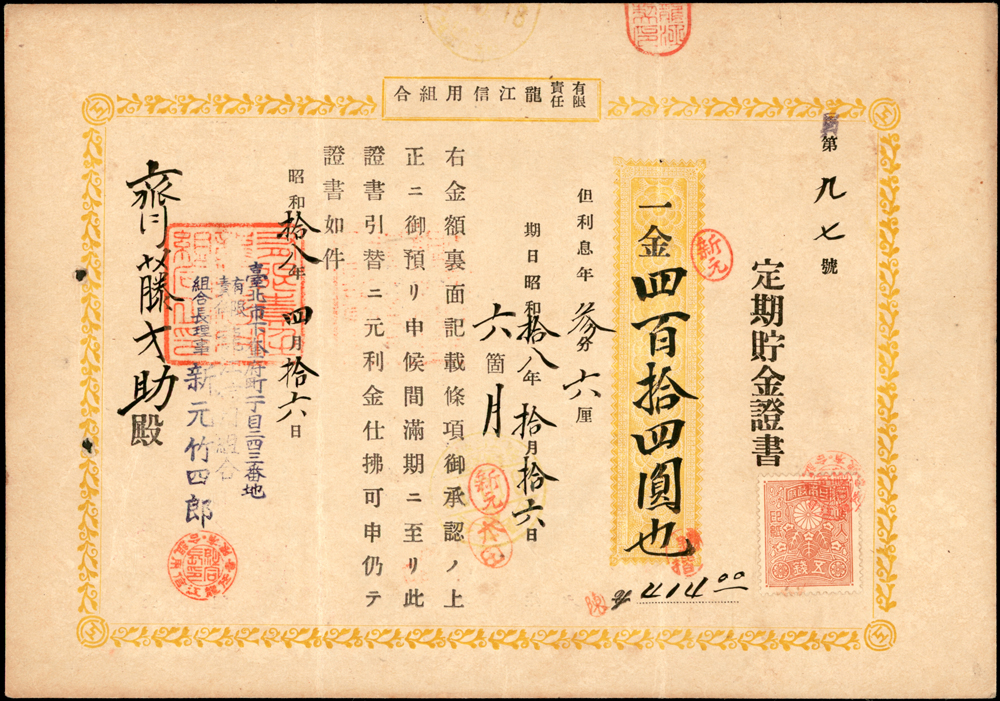 有限責任龍江信用組合
第九七號
定期貯金證書
一金四百拾四圓也
414.00
但利息年參分六厘
期日昭和拾八年拾月拾六日
六箇月
右金額裏面記載條項御承認ノ上
正ニ御預リ申候間滿期ニ至リ此
證書引替ニ元利金仕拂可申仍テ
證書如件
昭和拾八年四月拾六日
臺北市下奎府町一丁目二四三番地
有限責任龍江信用組合
組合長理事新元竹四郎
齊藤才助殿
新元
新元